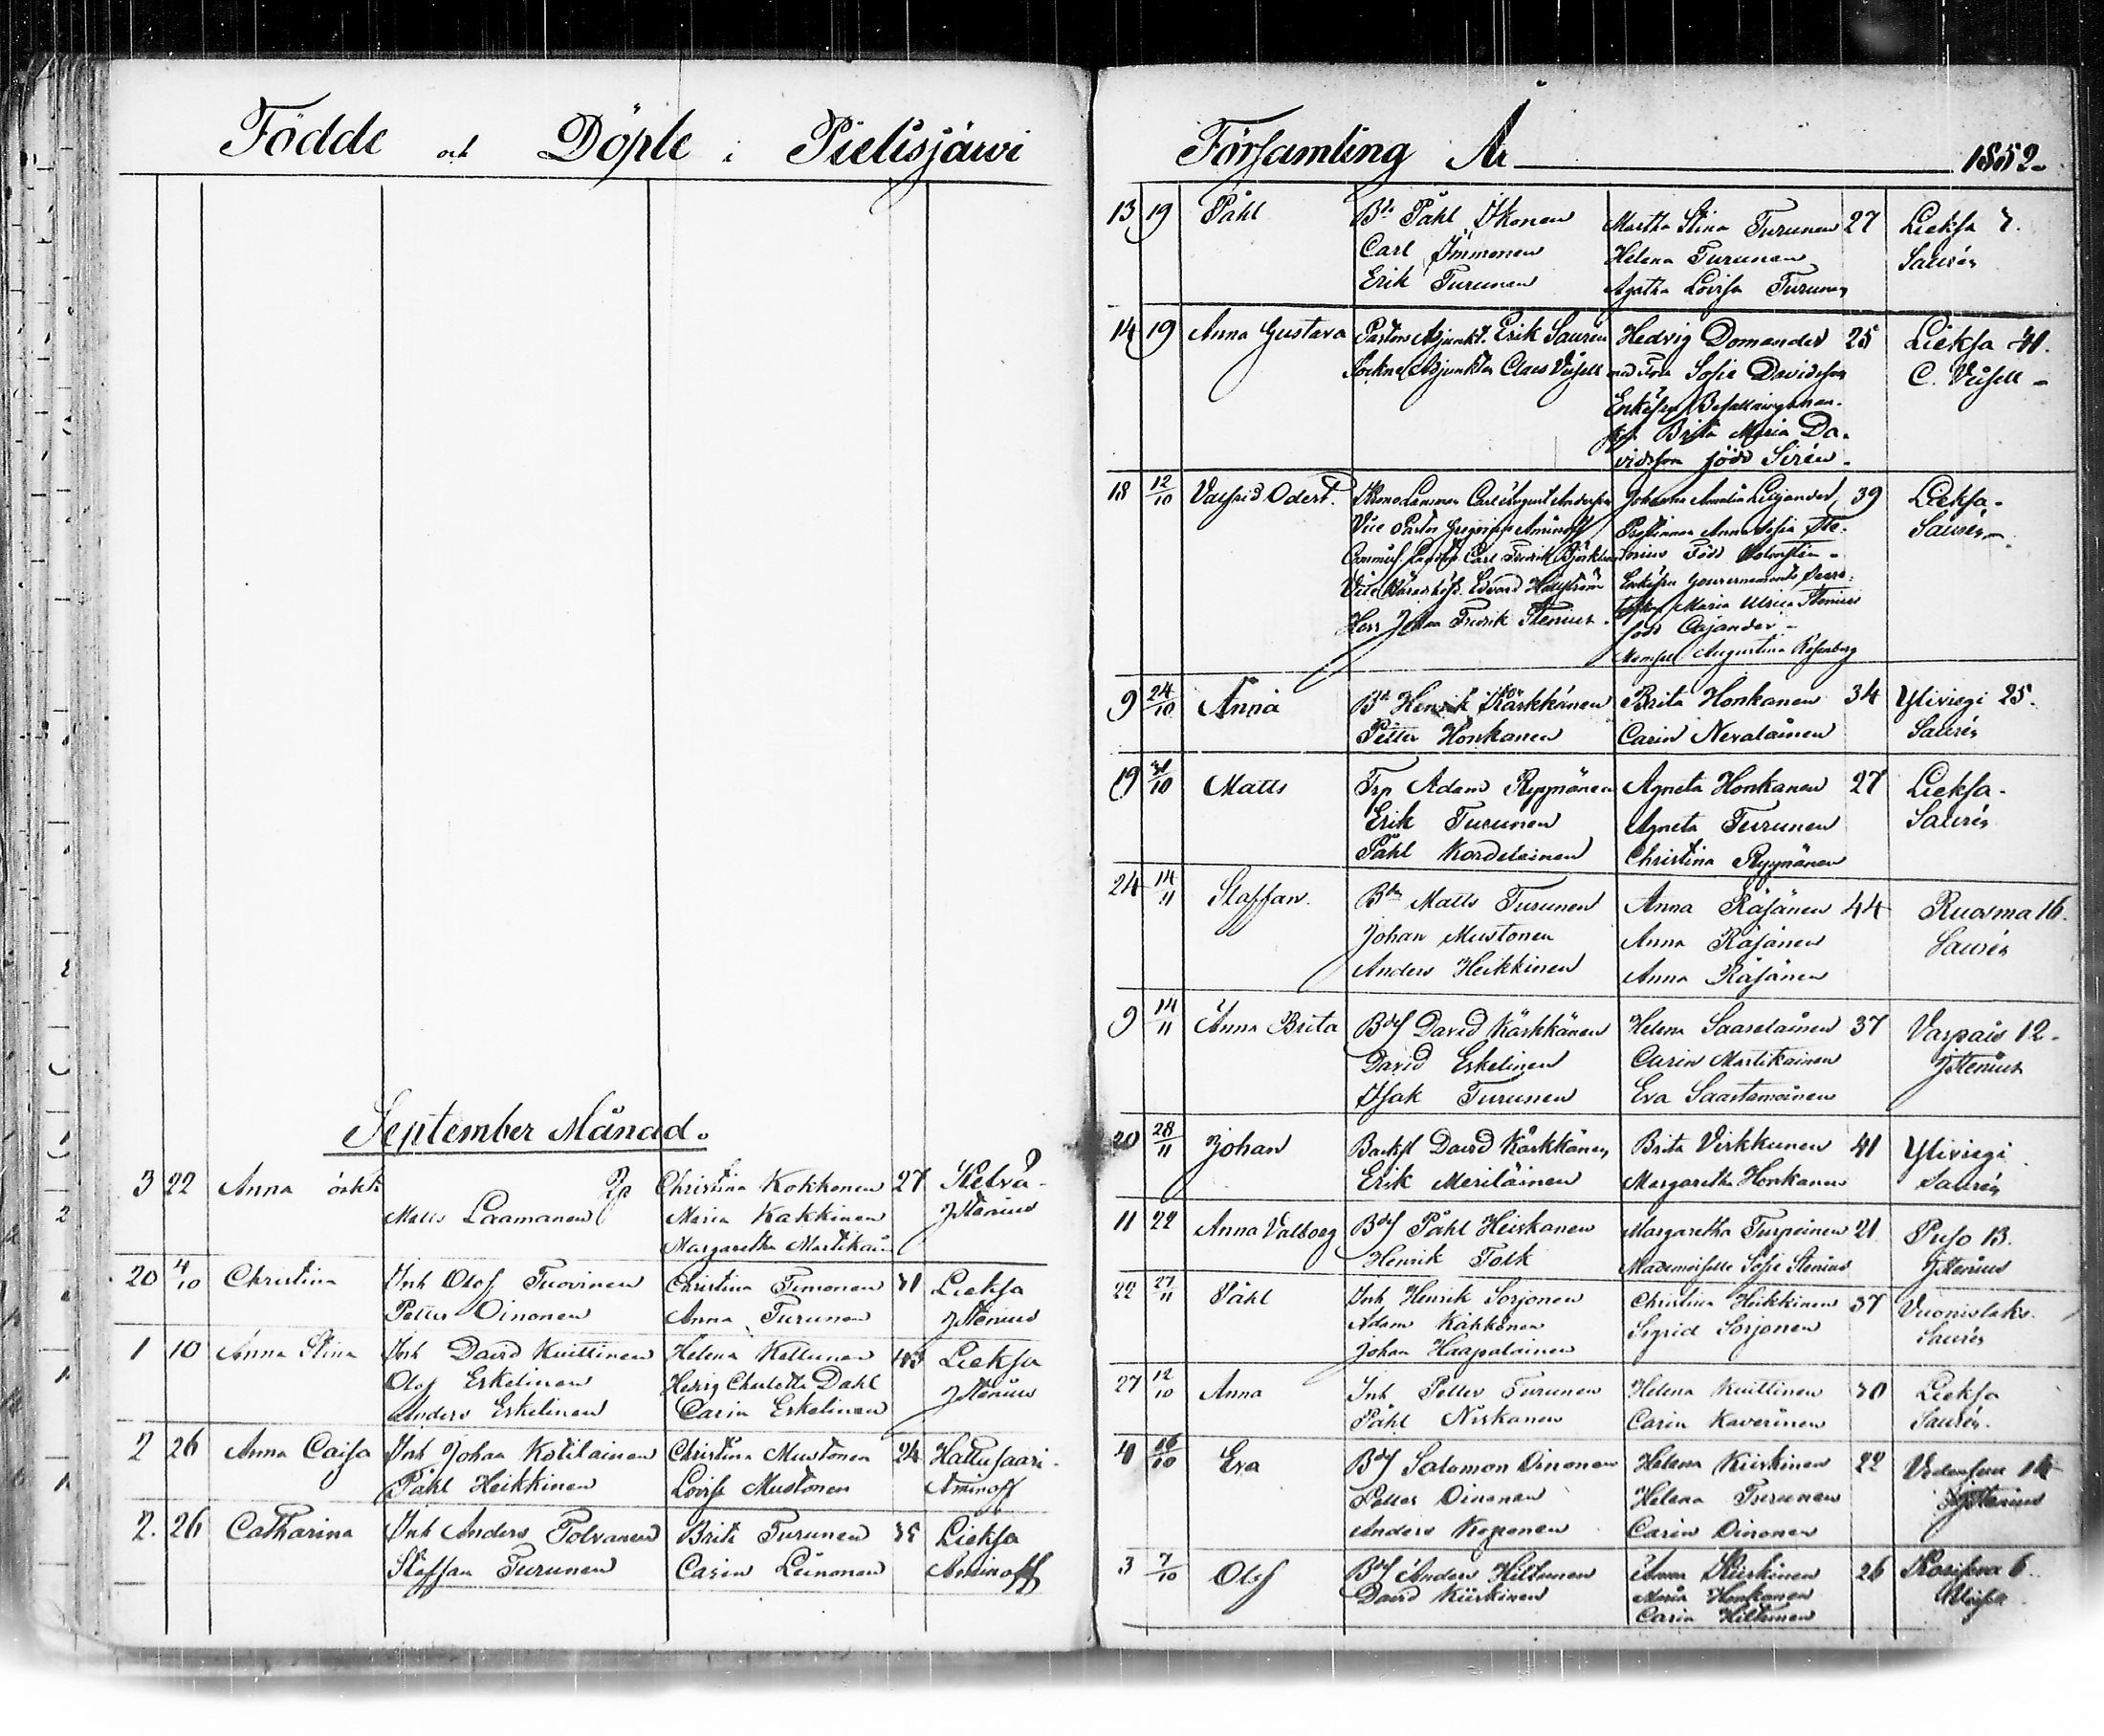 Födde och Döpte i Pielisjärvi
September Månad.
3 22 Anna oäkta Zp Christina Kokkonen 27 Kelvå-
Matts Laamanen Maria Kakkinen JStenius
Margaretha Martikain
20 4/10 Christina Inh Olof Tuovinen Christina Timonen 31 Lieksa
Petter Oinonen Anna Turunen JStenius
1 10 Anna Stina Inh David Kuittinen Helena Kettunen Lieksa
Olof Eskelinen Hedvig Charlotta Dahl JStenius
Anders Eskelinen Carin Eskelinen
2 26 Anna Caisa Inh Johan Kotilainen Christina Mustonen 24 Hattusaari-
Påhl Heikkinen Lovisa Mustonen Aminoff
2. 26 Catharina Inh Anders Tolvanen Brita Turunen 35 Lieksa
Staffan Turunen Carin Leinonen Aminoff
Församling År 1852-
13 19 Påhl Bd Påhl Ikonen Martha Stina Turunen 27 Lieksa 7.
Carl Immonen Helena Turunen Saurén
Erik Turunen Agatha Lovisa Turunen
14 19 Anna Gustava Pastors Adjunkt. Erik Saurén Hedvig Domander 25 Lieksa 41.
Sockne Adjunkten Claes Veisell med Fru Sofie Davidsson C. Veisell -
Enkefru Befallningsman-
Brita Maria Da-
vidsson född Sirén.
18 12/10 Valfrid Odert. Krono Länsman Carl August Andersin Johanna Amalia Cajander 39 Lieksa-
Vice Pastor Gregorius Aminoff Prostinnan Anna Sofia Ste- Saurén
Carl Fredrik Björklund nius Född Holmstén -
Vice Häradshöfd. Edvard Hällström Enkefru Gouvernements Secre-
Herr Johan Fredrik Stenius. Maria Ulrica Stenius
född Cajander -
Mamsell Augustina Rosenberg
9 24/10 Anna Bd Henrik Kärkkänen Brita Honkanen 34 Yliviegi 25.
Petter Honkanen Carin Nevalainen Saurén
19 31/10 Matts Trp Adam Ryynänen Agneta Honkanen 27 Lieksa-
Erik Turunen Agneta Turunen Saurén
Påhl Kordelainen Christina Ryynänen
24 14/11 Staffan. Bdn Matts Turunen Anna Räsänen 44 Ruosma 16.
Johan Mustonen Anna Räsänen Saurén
Anders Heikkinen Anna Räsänen
9 14/11 Anna Brita Bds David Kärkkänen Helena Saarelainen 37 Varpais 12-
David Eskelinen Carin Martikainen JStenius
Isak Turunen Eva Saastamoinen
20 28/11 Johan David Kärkkänen Brita Virkkunen 41 Yliviegi
Erik Meriläinen Margaretha Honkanen Saurén
11 22 Anna Valborg Bds Påhl Heiskanen Margaretha Turpeinen 21 Puso 13.
Henrik Tolk Mademoiselle Sofie Stenius JStenius
22 27/11 Påhl Inh Henrik Sorjonen Christina Heikkinen 37 Vuonislaks.
Adam Kähkönen Sigrid Sorjonen Saurén
Johan Haapalainen
27 12/10 Anna Inh Petter Turunen Helena Kuittinen 30 Lieksa
Påhl Niskanen Carin Kaverinen Saurén.
4 16/10 Eva Bds Salomon Oinonen Helena Kiiskinen 22
Petter Oinonen Helena Turunen JStenius
Anders Koponen Carin Oinonen
3 7/10 Olof Bds Anders Hiltunen Anna Kiiskinen 26
David Kiiskinen Maria Honkanen
Carin Hiltunen